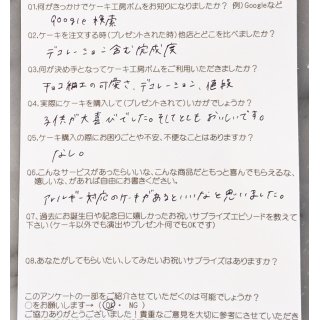 01.何がきっかけでケーキ工房ボムをお知りになりましたか？ 例)Googleなど
Google 検索
02.ケーキを注文する時(プレゼントされた時)他店とどこを比べましたか？
デコレーション含む完成度
03.何が決め手となってケーキ工房ボムをご利用いただきましたか？
チョコ細工の可愛さ、デコレーション、値段
04.実際にケーキを購入して(プレゼントされて)いかがでしょうか？
子供が大喜びでした。そしてとてもおいしいです。
05.ケーキ購入の際にお困りごとや不安、不便なことはありますか？
なし。
06.こんなサービスがあったらいいな、こんな商品だともっと喜んでもらえるな、
嬉しいな、があれば自由にお書きください。
アレルギー対応のケーキがあるといいなと思いました。
07.過去にお誕生日や記念日に嬉しかったお祝いサプライズエピソードを教えて
下さい(ケーキ以外でも演出やプレゼント何でもOKです)
08.あなたがしてもらいたい、してみたいお祝いサプライズはありますか？
このアンケートの一部をご紹介させていただくのは可能でしょうか？
○をお願いします→ ( OK ・ NG )
ご協力ありがとうございました！貴重なご意見を大切に参考にさせていただき